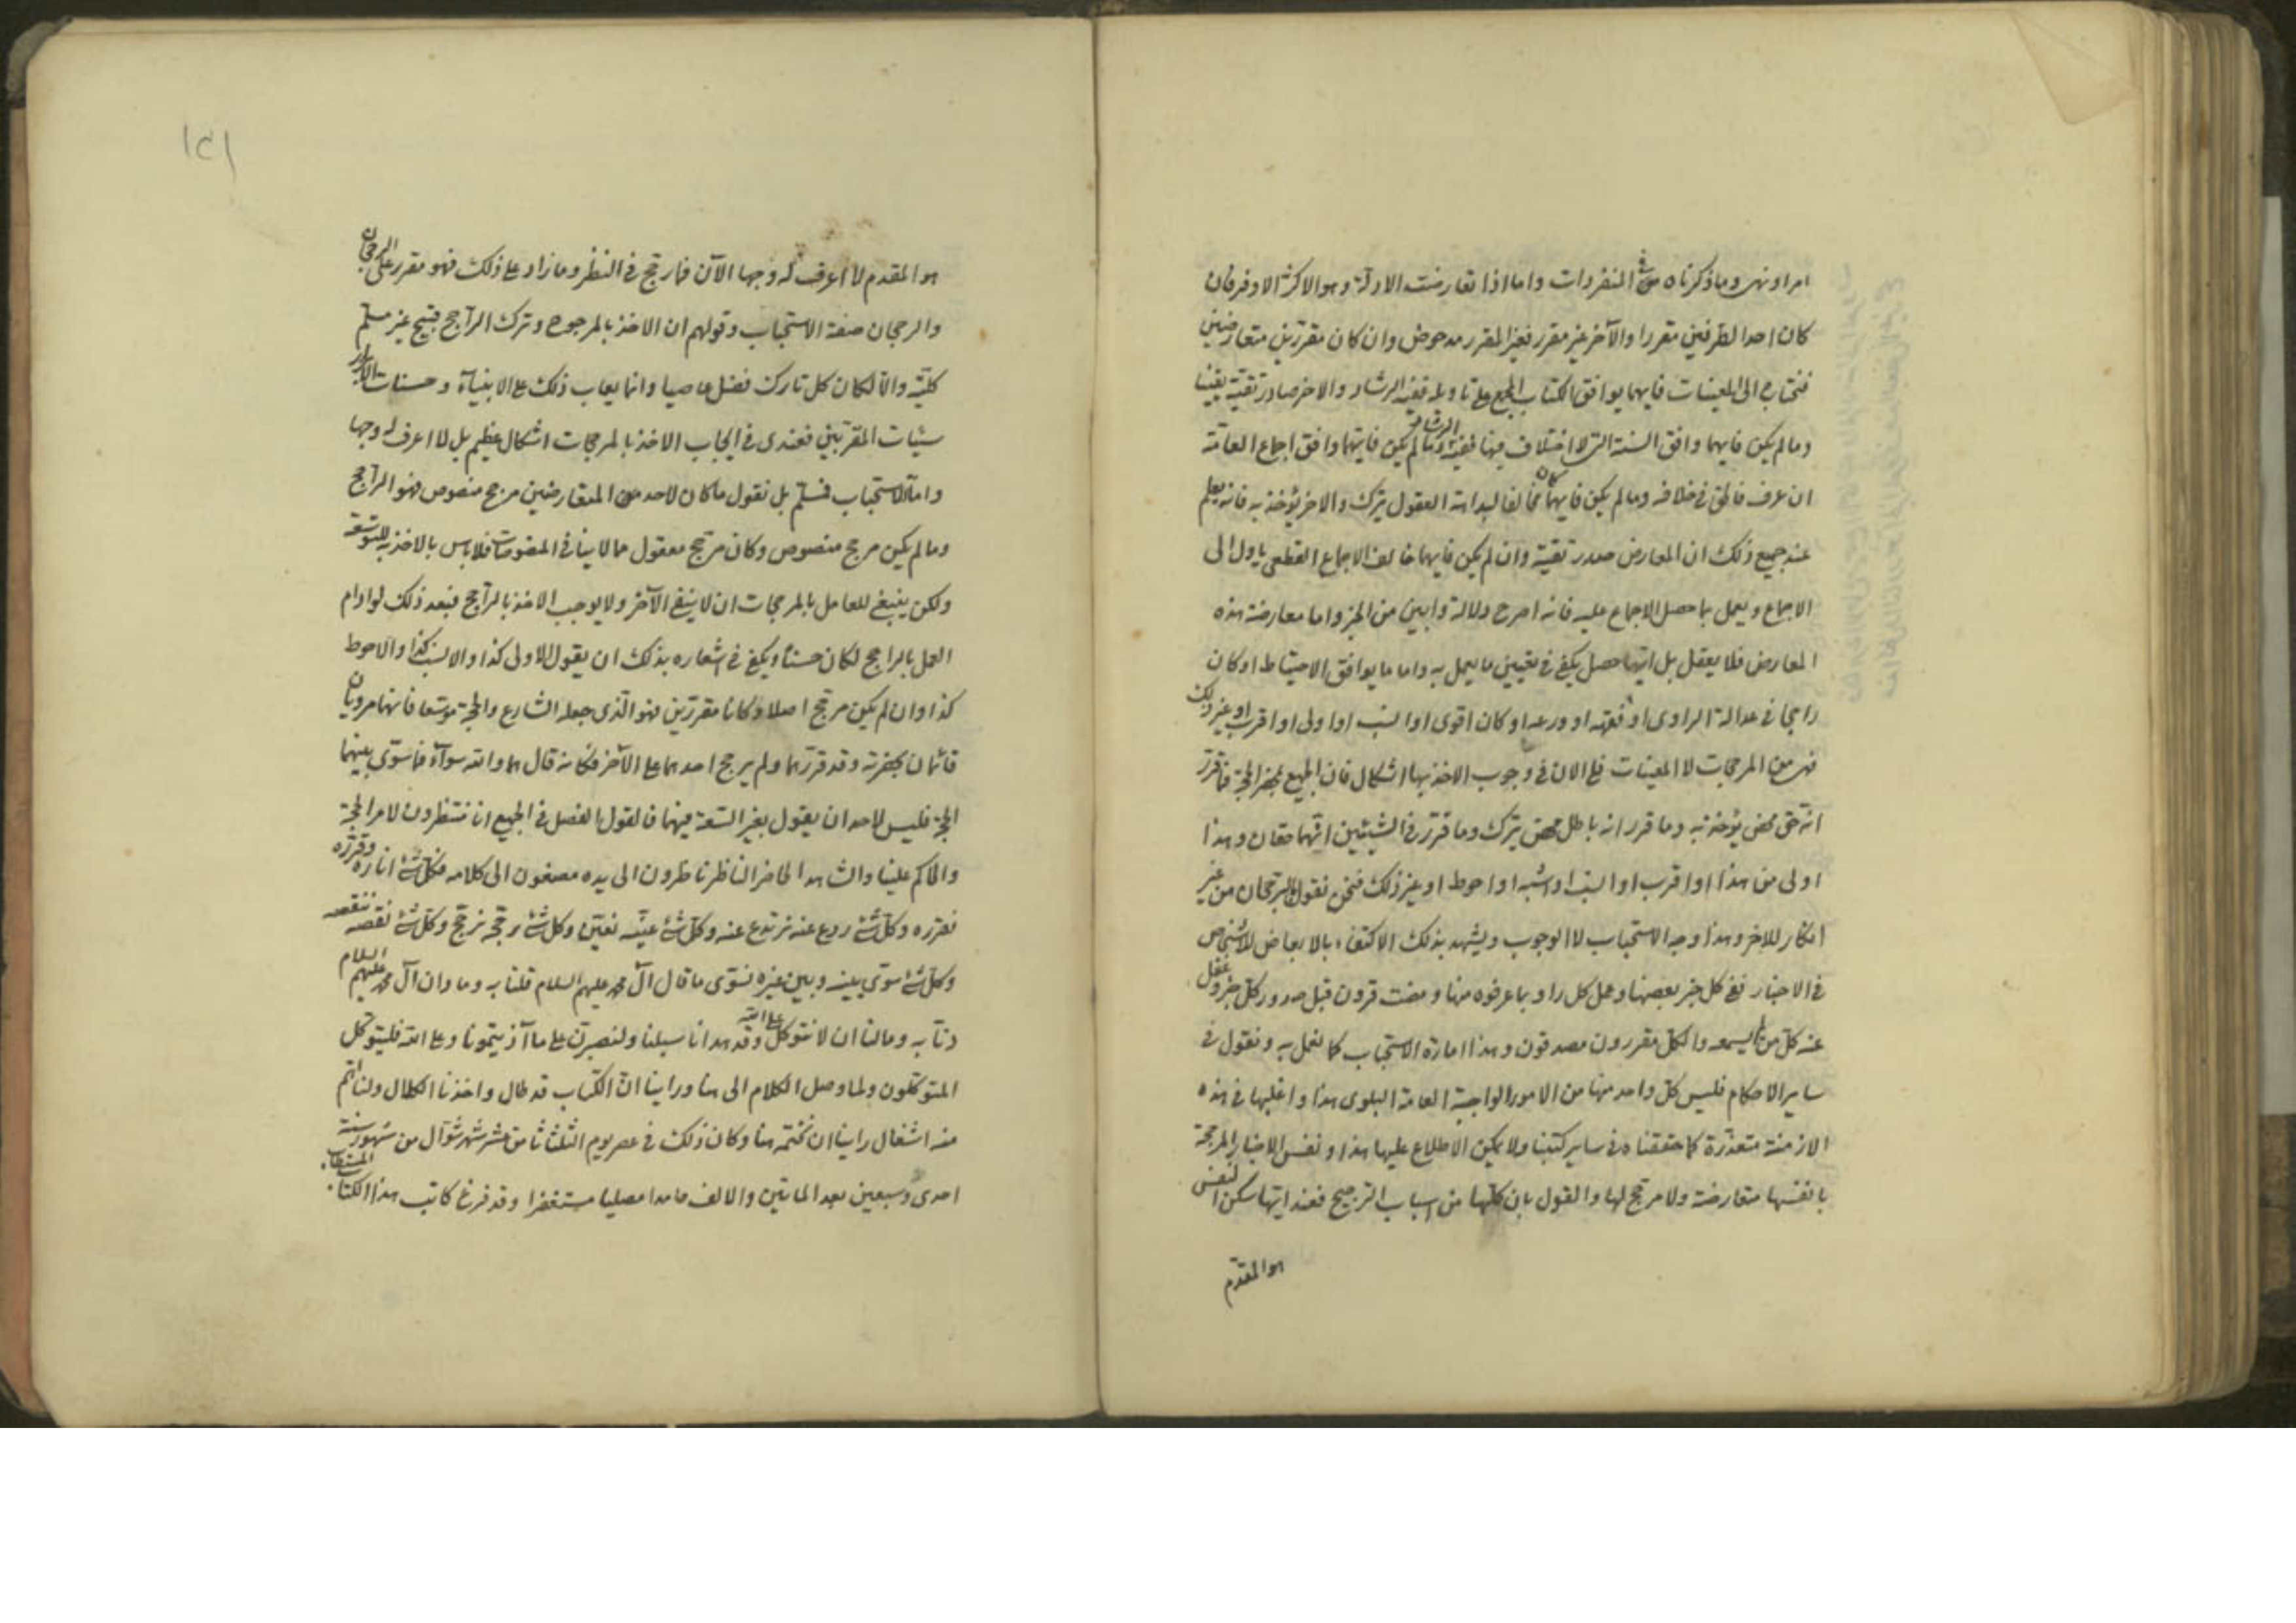 امرا و نهى و ما ذكرناه فى المنفردات و اما اذا تعارضت الادلة و هو الاكثر الاوفر فان
كان احد الطرفين مقررا و الآخر غير مقرر فغير المقرر مدحوض و ان كان مقررين متعارضين
الى المعينات فايهما يوافق الكتاب المجمع على تاويله ففيه الرشاد و الاخر صادر تقية يقينا
و ما لم يكن فايهما وافق السنة التى لا اختلاف فيها ففيه الرشاد و ما لم يكن فايهما وافق اجماع العامة
ان عرف فالحق فى خلافه و ما لم يكن فايهما كان مخالفا لبداهة العقول يترك و الاخر يؤخذ به فانه يعلم
عند جميع ذلك ان المعارض صدر تقية و ان لم يكن فايهما خالف الاجماع القطعى ياول الى
الاجماع و يعمل بما حصل الاجماع عليه فانه اصرح دلالة و ابين من الخبر و اما معارضة هذه
المعارض فلا يعقل بل ايتها حصل يكفى فى تعيين ما يعمل به و اما ما يوافق الاحتياط او كان
راجحا فى عدالة الراوى او فقهه او ورعه او كان اقوى او انسب او اولى او اقرب او غير ذلك
فهى من المرجحات لا المعينات فلى الان فى وجوب الاخذ بها اشكال فان الجميع بحضر الحجة فما قرر
انه حق محض يؤخذ به و ما قرر انه باطل محض يترك و ما قرر فى الشيئين انهما حقان و هذا
اولى من هذا او اقرب او انسب او اشبه او احوط او غير ذلك فنحن نقول بالرجحان من غير
انكار للاخر و هذا وجه الاستحباب لا الوجوب و يشهد بذلك الاكتفاء بالابعاض للاشخاص
فى الاخبار ففى كل خبر بعضها و عمل كل راو بما عرفوه منها و مضت قرون قبل صدور كل خبر و غفل
عنه كل من لم يسمعه و الكل مقررون مصدقون و هذا امارة الاستحباب كما نعمل به و نقول فى
ساير الاحكام فليس كل واحد منها من الامور الواجبة العامة البلوى هذا و اغلبها فى هذه
الازمنة متعذرة كما حققناه فى ساير كتبنا و لا يمكن الاطلاع عليها هذا و نفس الاخبار المرجحة
بانفسها متعارضة و لا مرجح لها و القول بان كلها من اسباب الترجيح فعند ايتها سكن النفس
هو المقدم
١٢١
هو المقدم لا اعرف له وجها الآن فما رجح فى النظر و ما زاد على ذلك فهو مقرر على الرجحان
و الرجحان صفة الاستحباب و قولهم ان الاخذ بالمرجوح و ترك الراجح قبيح غير مسلم
كلية و الا لكان كل تارك فضل عاصيا و انما يعاب ذلك على الانبياء و حسنات الابرار
سيئات المقربين فعندى فى ايجاب الاخذ بالمرجحات اشكال عظيم بل لا اعرف له وجها
و اما الاستحباب فمسلم بل نقول ما كان لاحد من المتعارضين مرجح منصوص فهو الراجح
و ما لم يكن مرجح منصوص و كان مرجح معقول مما لا ينافى المنصوصات فلا باس بالاخذ به للتوسعة
و لكن ينبغى للعامل بالمرجحات ان لا ينفى الآخر و لا يوجب الاخذ بالراجح فبعد ذلك لو ادام
العمل بالراجح لكان حسنا و يكفى فى اشعاره بذلك ان يقول الاولى كذا و الانسب كذا و الاحوط
كذا و ان لم يكن مرجح اصلا و كانا مقررين فهو الذى جعله الشارع و الحجة موسعا فانهما مرويان
قائمان بحضرته و قد قررهما و لم يرجح احدهما على الآخر فكانه قال هما و الله سوآء فما سوى بينهما
الحجة فليس لاحد ان يقول بغير السعة فيهما فالقول الفصل فى الجميع انا منتظرون لامر الحجة
و الحاكم علينا و الشاهد الحاضر الناظر ناظرون الى يده مصغون الى كلامه فكل شئ اناره و قرره
نقرره و كل شئ ردع عنه نرتدع عنه و كل شئ عينه نعين و كل شئ رجحه نرجح و كل شئ نقصه ننقصه
و كل شئ سوى بينه و بين غيره نسوى ما قال آل محمد عليهم السلام قلنا به و ما دان آل محمد عليهم السلام
دنا به و ما لنا ان لا نتوكل على الله و قد هدانا سبلنا و لنصبرن على ما آذيتمونا و على الله فليتوكل
المتوكلون و لما وصل الكلام الى هنا و راينا ان الكتاب قد طال و اخذنا الكلال و لنا اهم
منه اشغال راينا ان نختمه هنا و كان ذلك فى عصر يوم الثلثا ثامن عشر شهر شوال من شهور سنة
احدى و سبعين بعد الماتين و الالف حامدا مصليا مستغفرا و قد فرغ كاتب هذا الكتاب المستطاب